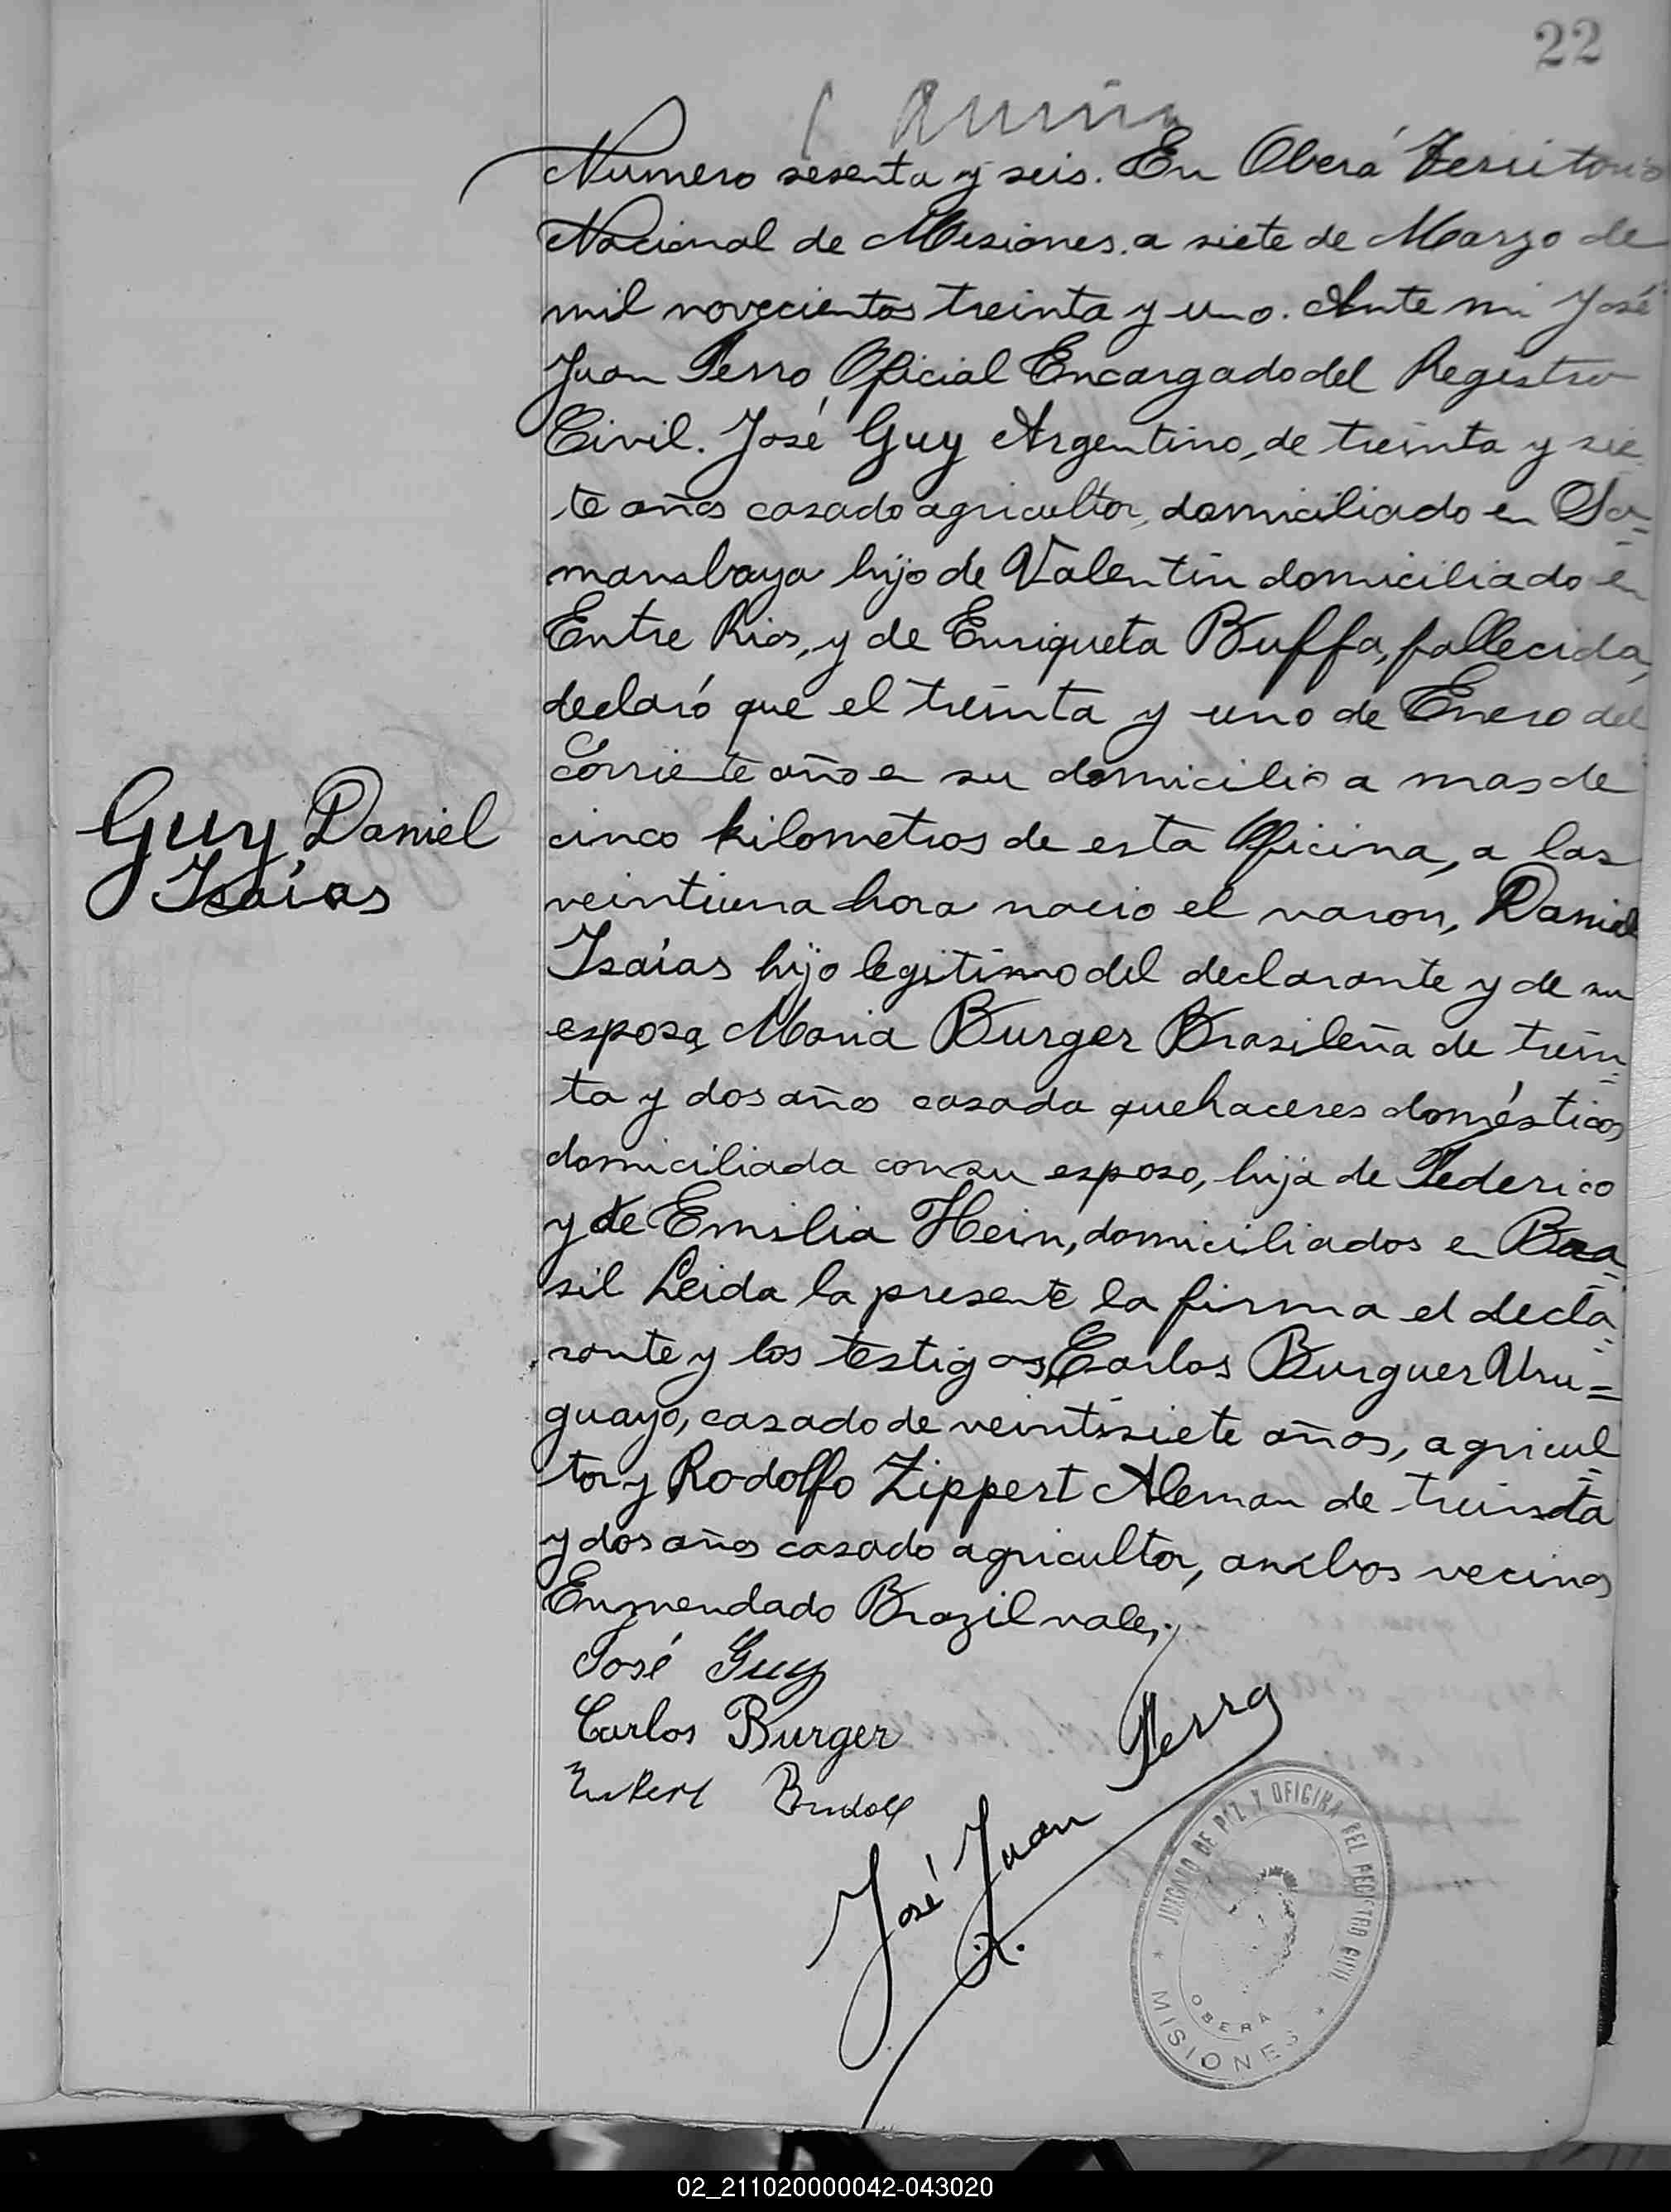 22
Numero sesenta y seis. En Oberá Territorio
Nacional de Misiones. a siete de Marzo de
mil novecientos treinta y uno. Ante mi José
Juan Perro, Oficial Encargado del Registro
Civil. José Guy Argentino, de treinta y sie
te años casado agricultor, domiciliado en Sa=
mambaya hijo de Valentin domiciliado en
Entre Rios, y de Enriqueta Buffa, fallecida,
declaró que el treinta y uno de Enero del
Corriente año en su domicilio a mas de
Guy, Daniel
Isaías
cinco kilometros de esta Oficina, a las
veintiuna hora nacio el varon, Daniel
Isaías hijo legitimo del declarante y de su
esposa Maria Burger Brasileña de trein=
ta y dos años casada quehaceres domésticos
domiciliada con su esposo, hija de Federico
y de Emilia Hein, domiciliados en Bra=
sil Leida la presente la firma el decla=
rante y los testigos, Carlos Burguer Uru=
guayo, casado de veintisiete años, agricul=
tor y Rodolfo Zippert Aleman de treinta
y dos años casado agricultor, ambos vecinos
Enmendado Brazil vale.
José Guy
Carlos Burger
Rudolf
José Juan Perro
JUZGADO DE PAZ Y OFICINA DEL REGISTRO CIVIL
OBERA
* MISIONES *
02_211020000042-043020